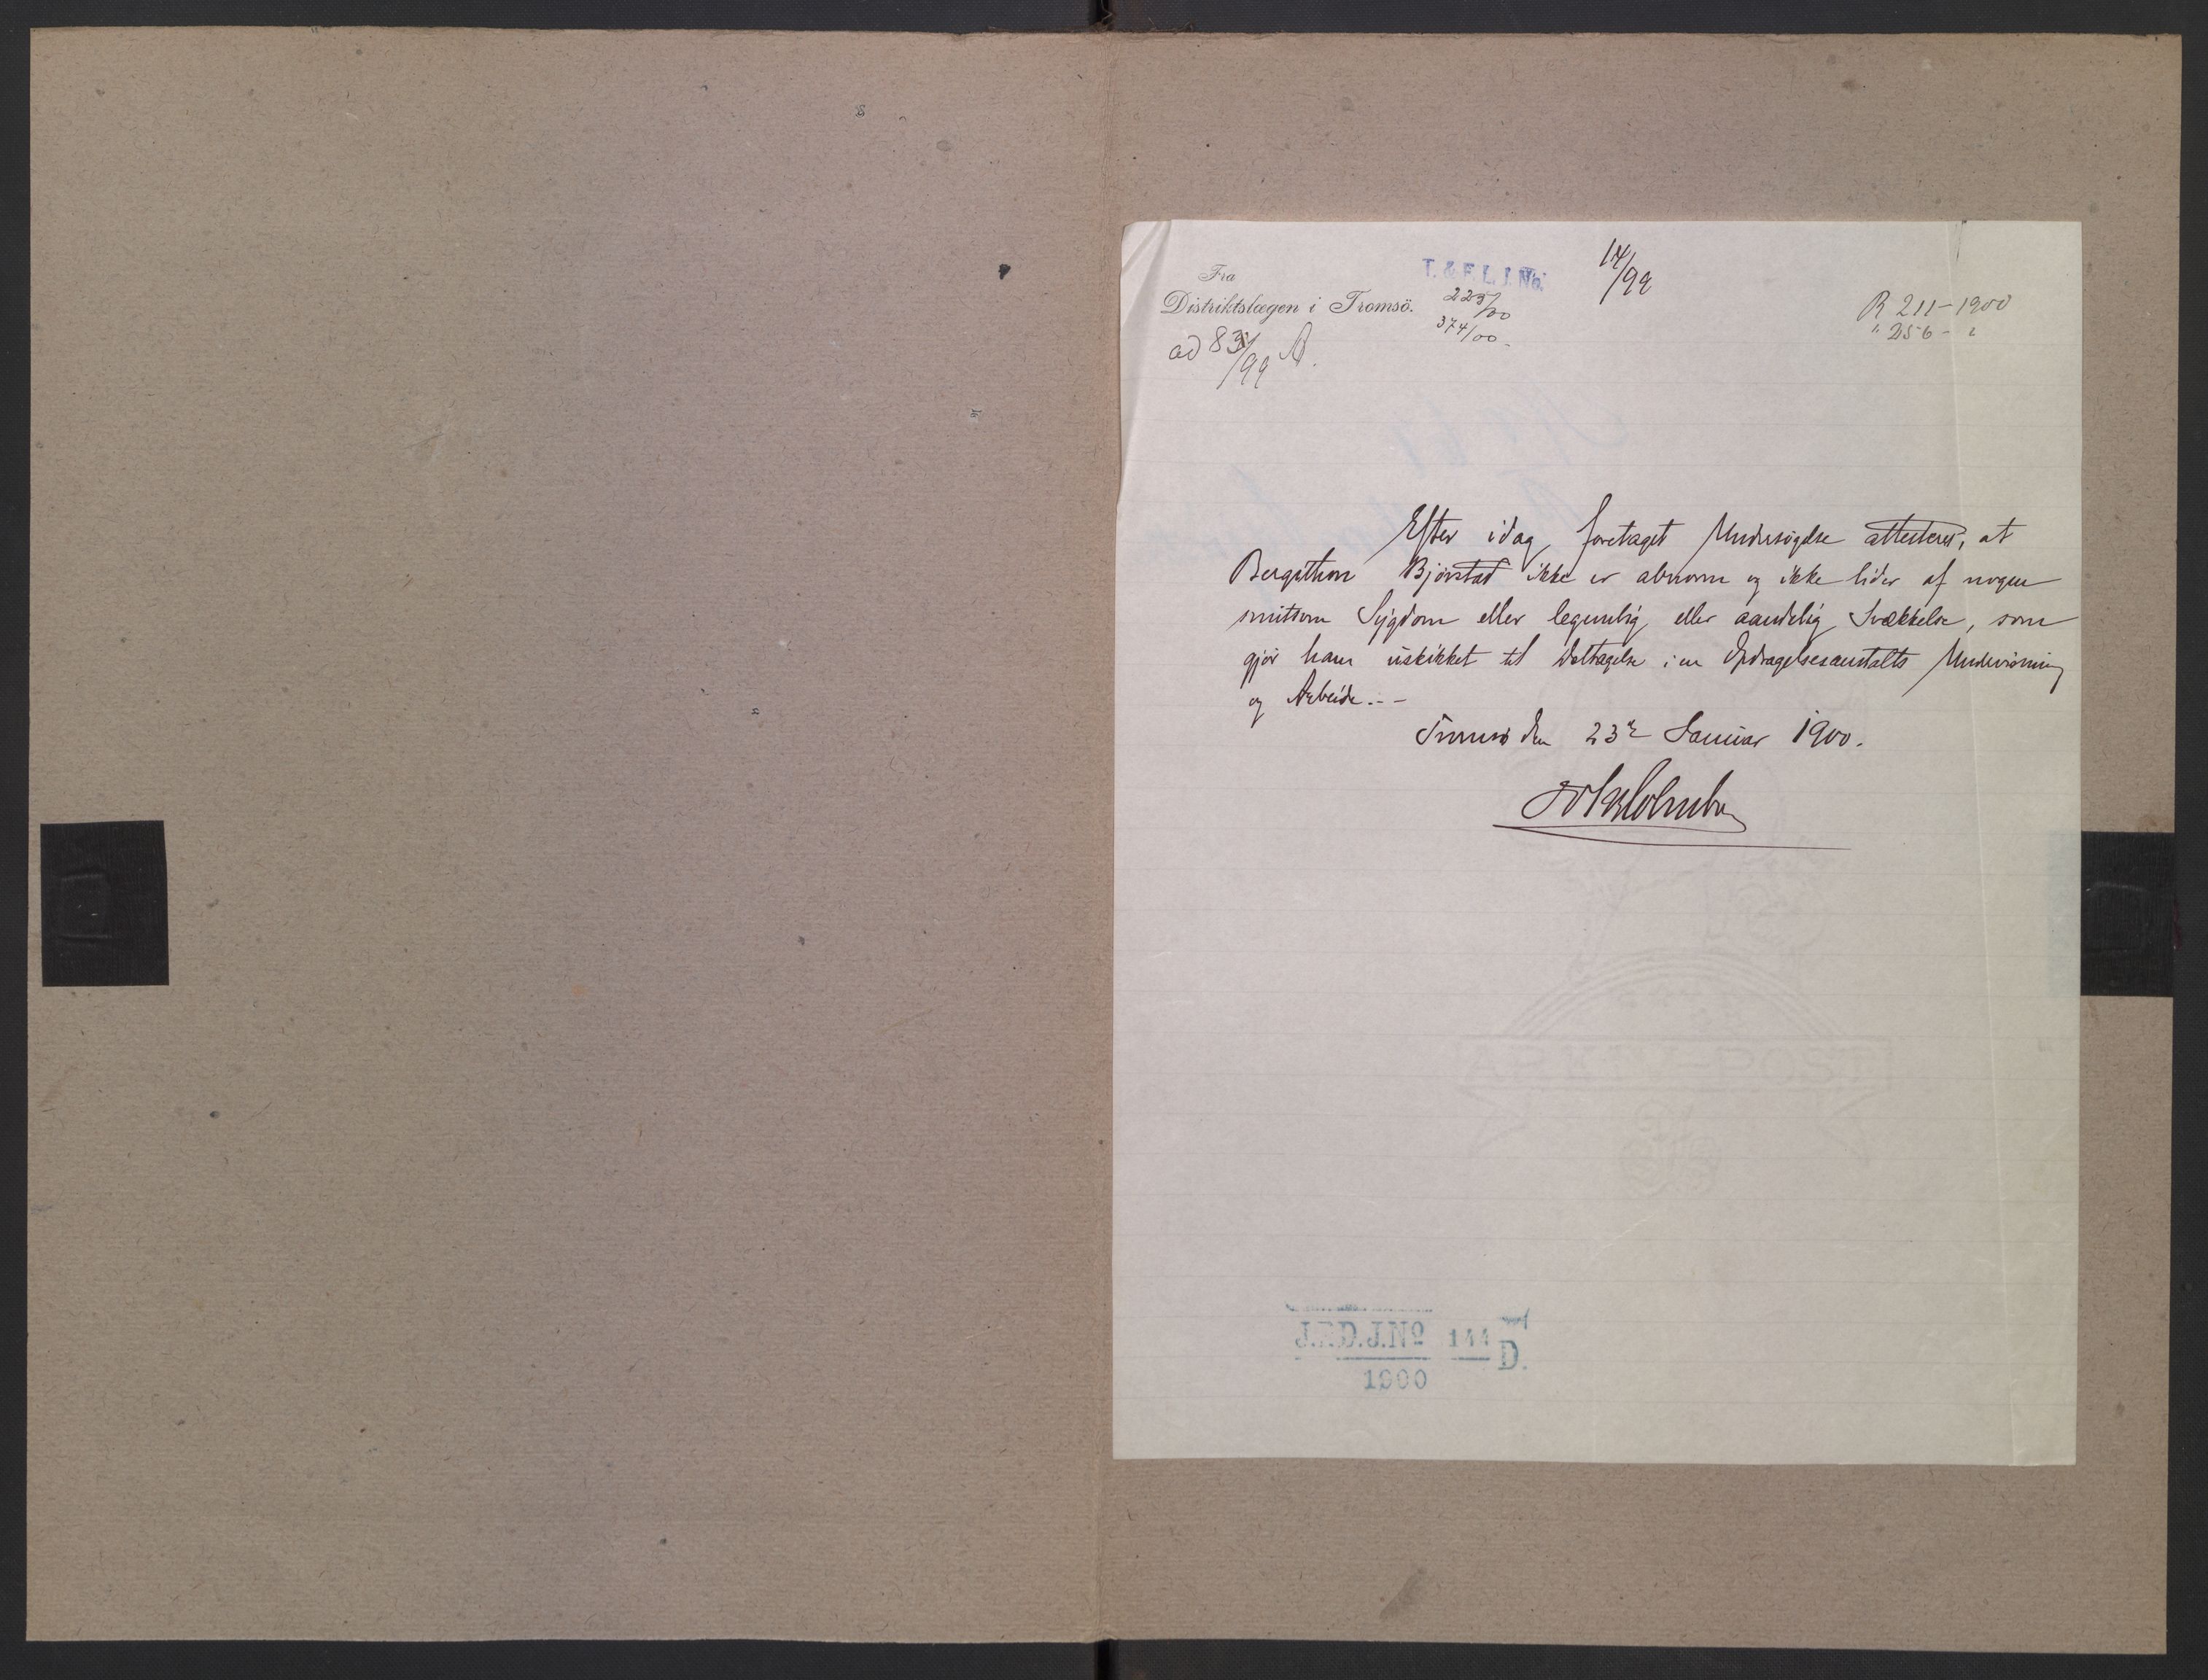 Fra
Distriktslægen i Tromsö.
T. & F. L. J. No.
225/00
374/00.
14/99
R 211-1900
" 256 - "
ad 83/99 A.
Efter idag foretaget Undersögelse attesteres, at
Bergithon Bjørstad ikke er abnorm og ikke lider af nogen
smitsom Sygdom eller legemlig eller aandelig Svækkelse, som
gjör ham uskikket til Deltagelse i en Opdragelsesanstalts Undervisning
og Arbeide.--
Tromsö den 23de Januar 1900.
J.D.J.Nº 144 D.
1900